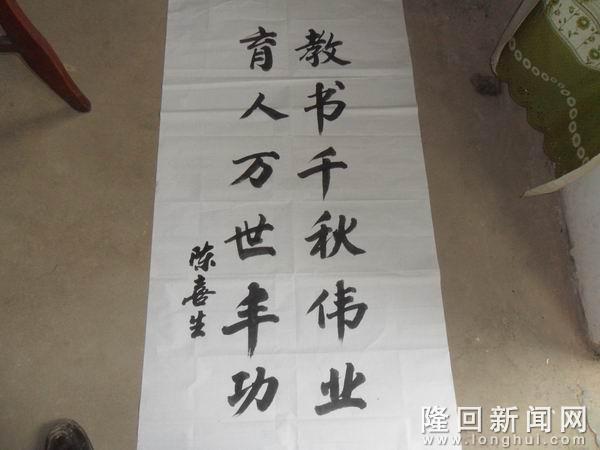 教书千秋伟业
育人万世丰功
陈喜生
隆回新闻网
www.longhui.com